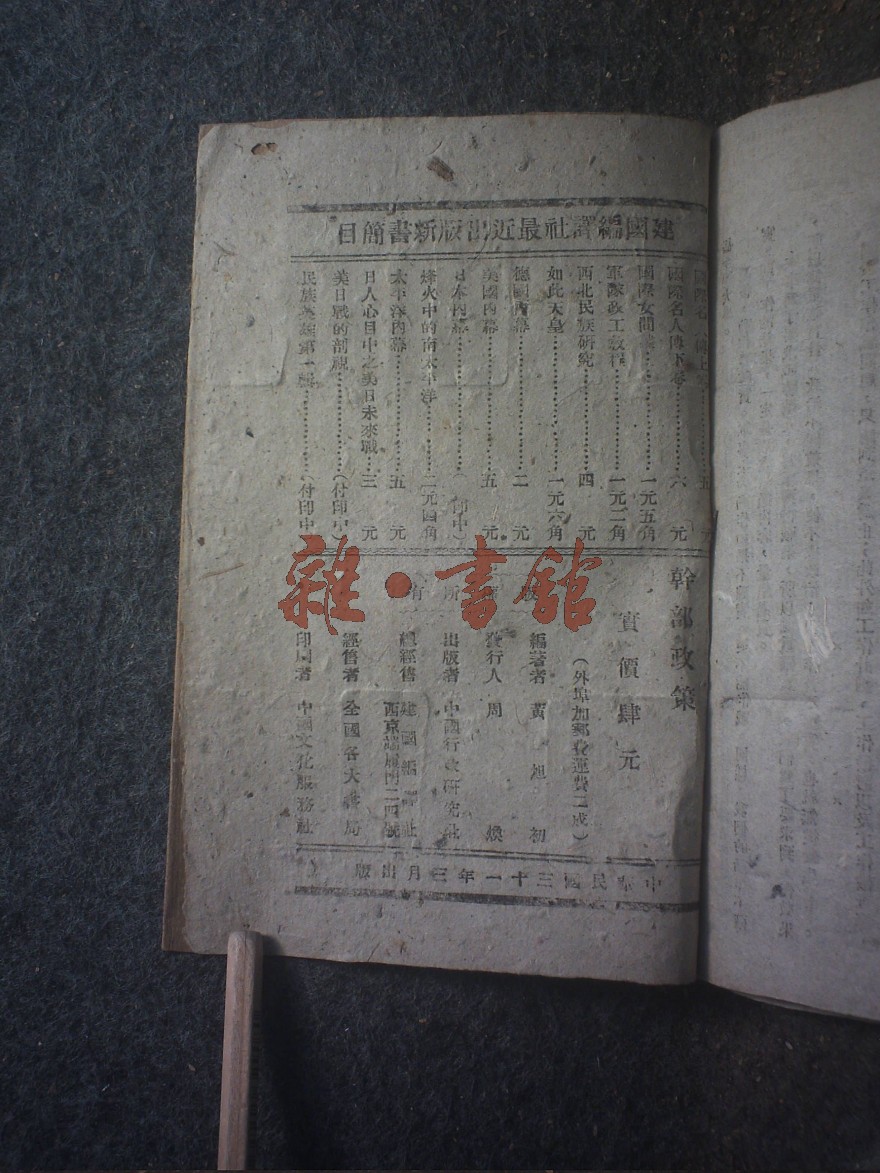 建國編譯社最近出版新書簡目
國際名人傳下卷⋯⋯六元
國際女間諜⋯⋯一元五角
軍隊政工教程⋯⋯一元二角
西北民族研究⋯⋯四元
如此天皇⋯⋯一元六角
德國內幕⋯⋯二元
美國內幕⋯⋯五元
日本內幕⋯⋯(印中)
烽火中的南太平洋⋯⋯二元四角
太平洋內幕⋯⋯五元
日人心目中之美日未來戰⋯⋯三元
美日戰的剖視⋯⋯(付印中)
民族英雄第一輯⋯⋯(付印中)
幹部政策
實價肆元
(外埠加郵費運費二成)
所有
編著者 黃旭初
發行人 周煥
出版者 中國行政研究社
總經售 建國編譯社
西京端履門二四號
經售者 全國各大書局
印刷者 中國文化服務社
中華民國三十一年三月出版
雜·書館